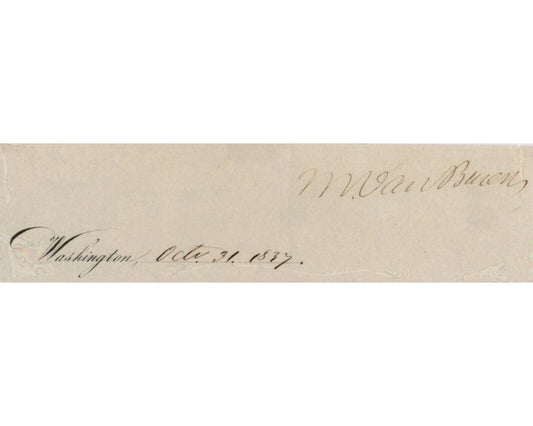 M. Van Buren
Washington, Octr. 31. 1837.